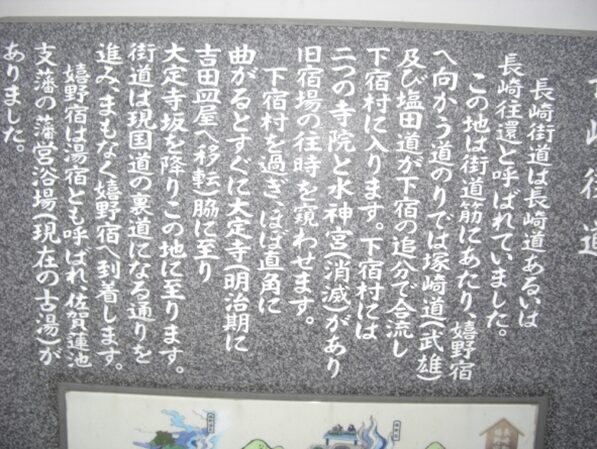 崎街道
長崎街道は長崎道あるいは
長崎往還と呼ばれていました。
この地は街道筋にあたり、嬉野宿
へ向かう道のりでは塚崎道(武雄)
及び塩田道が下宿の追分で合流し
下宿村に入ります。下宿村には
二つの寺院と水神宮(消滅)があり
旧宿場の往時を窺わせます。
下宿村を過ぎ、ほぼ直角に
曲がるとすぐに大定寺(明治期に
吉田皿屋へ移転)脇に至り
大定寺坂を降りこの地に至ります。
街道は現国道の裏道になる通りを
進み、まもなく嬉野宿へ到着します。
嬉野宿は湯宿とも呼ばれ、佐賀蓮池
支藩の藩営浴場(現在の古湯)が
ありました。